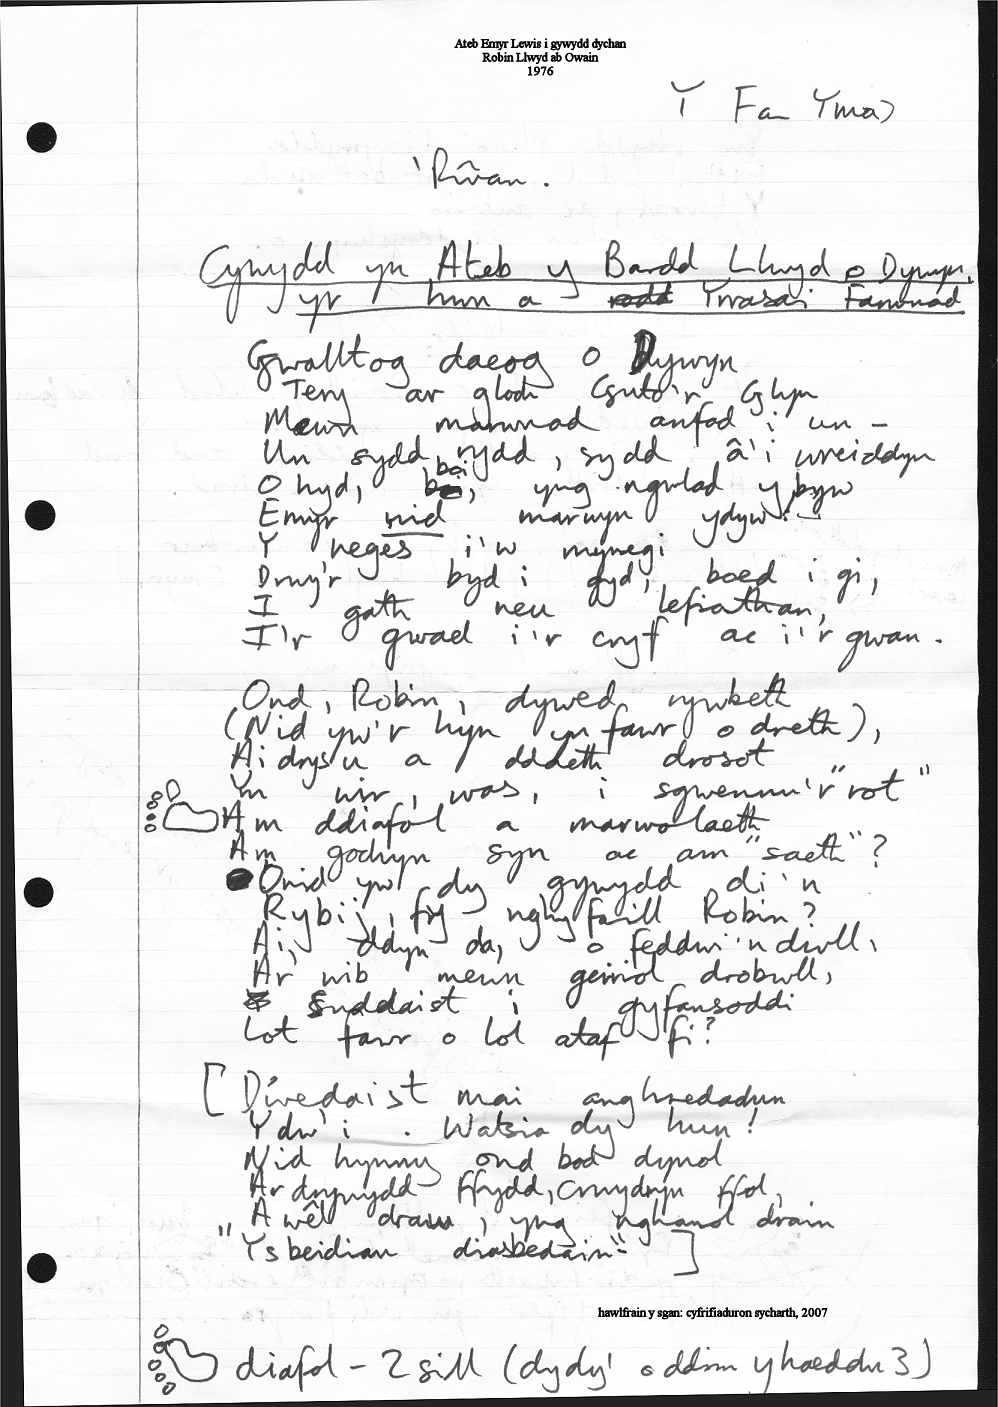 Ateb Emyr Lewis i gywydd dychan
Robin Llwyd ab Owain
1976
Y Fan Yma
'Rŵan.
Cywydd yn Ateb y Bardd Llwyd o Dywyn,
yr hwn a Ymasai Farwnad
Gwalltog daeog o Dywyn
Tery ar glod Gsuto'r Glyn
Mewn marwnad anfad i un -
Un sydd rydd, sydd â'i wreiddyn
O hyd, boi, yng ngwlad y byw
Emyr nid marwyn ydyw.
Y neges i'w mynegi
Drwy'r byd i gyd, boed i gi,
I gath neu lefiathan,
I'r gwael i'r cryf ac i'r gwan.
Ond, Robin, dywed rywbeth
(Nid yw'r hyn yn fawr o dreth),
Ai drysu a ddaeth drosot
Yn wir, was, i sgwennu'r "rot"
Am ddiafol a marwolaeth
Am gochyn syn ac am "saeth"?
Onid yw dy gywydd di'n
Rybij, fy nghyfaill Robin?
Ai, ddyn da, o feddwi'n dwll,
Ar wib mewn geiriol drobwll,
Suddaist i gyfansoddi
Lot fawr o lol ataf fi?
[Dwedaist mai anghredadun
Ydw' i. Watsia dy hun!
Nid hynny ond bod dynol
Ar drywydd ffydd, crwydryn ffol,
A wêl draw, yng nghanol drain
"Ysbeidian diasbedain"]
hawlfrain y sgan: cyfrifiaduron sycharth, 2007
diafol - 2 sill (dydy' o ddim yn haeddu 3)